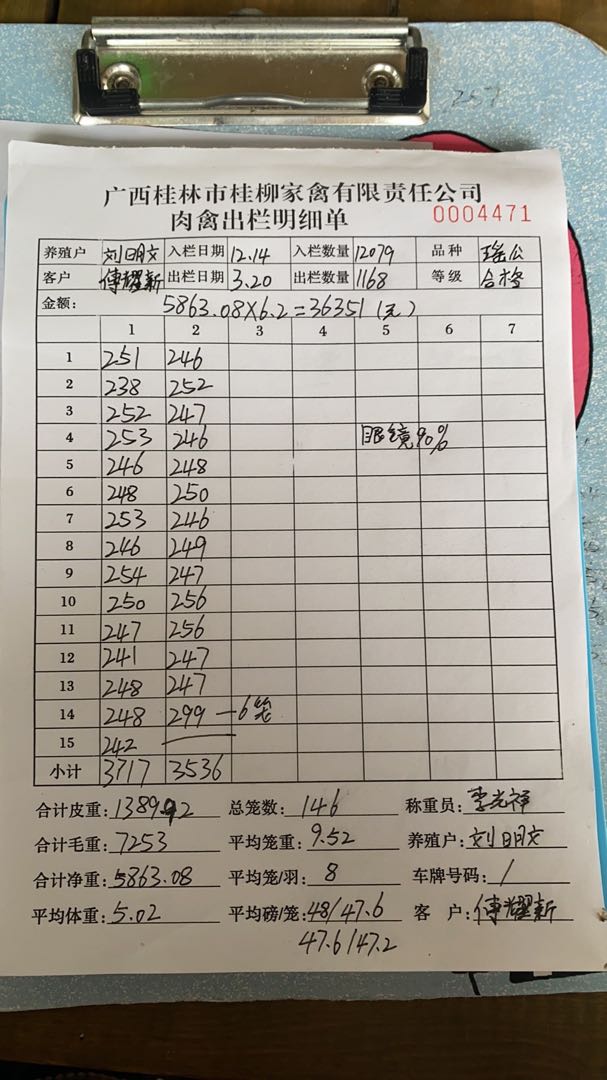 257
广西桂林市桂柳家禽有限责任公司
肉禽出栏明细单 0004471
养殖户 刘明文 入栏日期 12.14 入栏数量 12079 品种 瑶公
客户 傅耀新 出栏日期 3.20 出栏数量 1168 等级 合格
金额: 5863.08×6.2=36351(元)
1 2 3 4 5 6 7
1 251 246
2 238 252
3 252 247
4 253 246 眼镜90%
5 246 248
6 248 250
7 253 246
8 246 249
9 254 247
10 250 256
11 247 256
12 241 247
13 248 247
14 248 299 —6笼
15 242
小计 3717 3536
合计皮重: 1389.92 总笼数: 146 称重员: 李光祥
合计毛重: 7253 平均笼重: 9.52 养殖户: 刘明文
合计净重: 5863.08 平均笼/羽: 8 车牌号码: /
平均体重: 5.02 平均磅/笼: 48/47.6 客户: 傅耀新
47.6/47.2